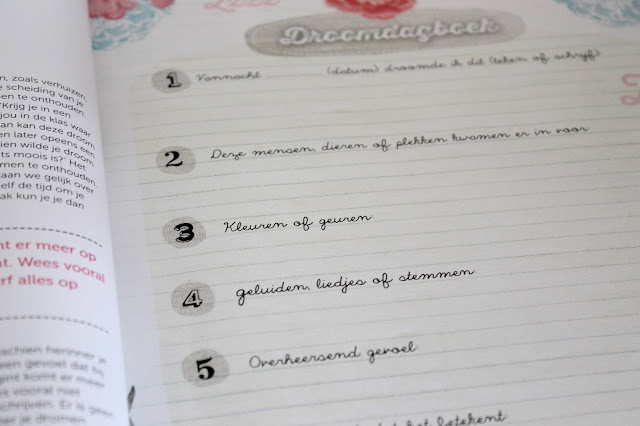 Droomdagboek
1 Vannacht (datum) droomde ik dit (teken of schrijf)
2 Deze mensen, dieren of plekken kwamen er in voor
3 Kleuren of geuren:
4 geluiden, liedjes of stemmen
5 Overheersend gevoel:
het betekent:
n, zoals verhuizen,
e scheiding van je
en te onthouden.
'Krijg je in een
jou in de klas waar
an kan deze droom
en later opeens een
ien wilde je droom
ts moois is?' Het
men te onthouden.
aan we gelijk over
elf de tijd om je
ak kun je je dan
nt er meer op
nt. Wees vooral
rf alles op
schien herinner je
een gevoel dat bij
komt er meer
s vooral niet
schrijven. Er is geen
er je dromen